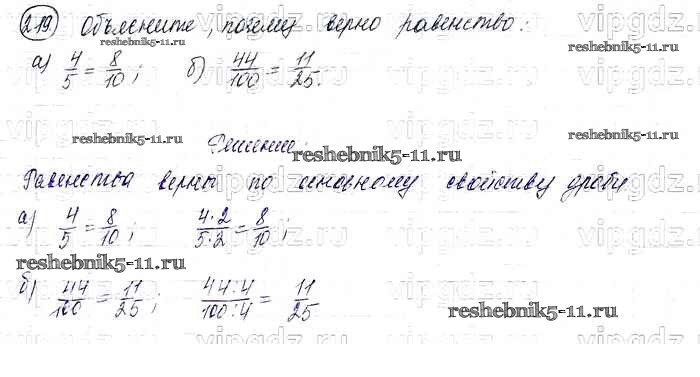 219) Объясните, почему верно равенство:
reshebnik5-11.ru reshebnik5-11.ru
а) 4/5 = 8/10; б) 44/100 = 11/25.
vipgdz.ru vipgdz.ru vipgdz.ru vipgdz.ru
reshebnik5-11.ru Решение. reshebnik5-11.ru
reshebnik5-11.ru
Равенства верны по основному свойству дроби
vipgdz.ru vipgdz.ru vipgdz.ru vipgdz.ru
а) 4/5 = 8/10; 4·2/5·2 = 8/10;
reshebnik5-11.ru
б) 44/100 = 11/25; 44:4/100:4 = 11/25.
reshebnik5-11.ru
vipgdz.ru vipgdz.ru vipgdz.ru vipgdz.ru